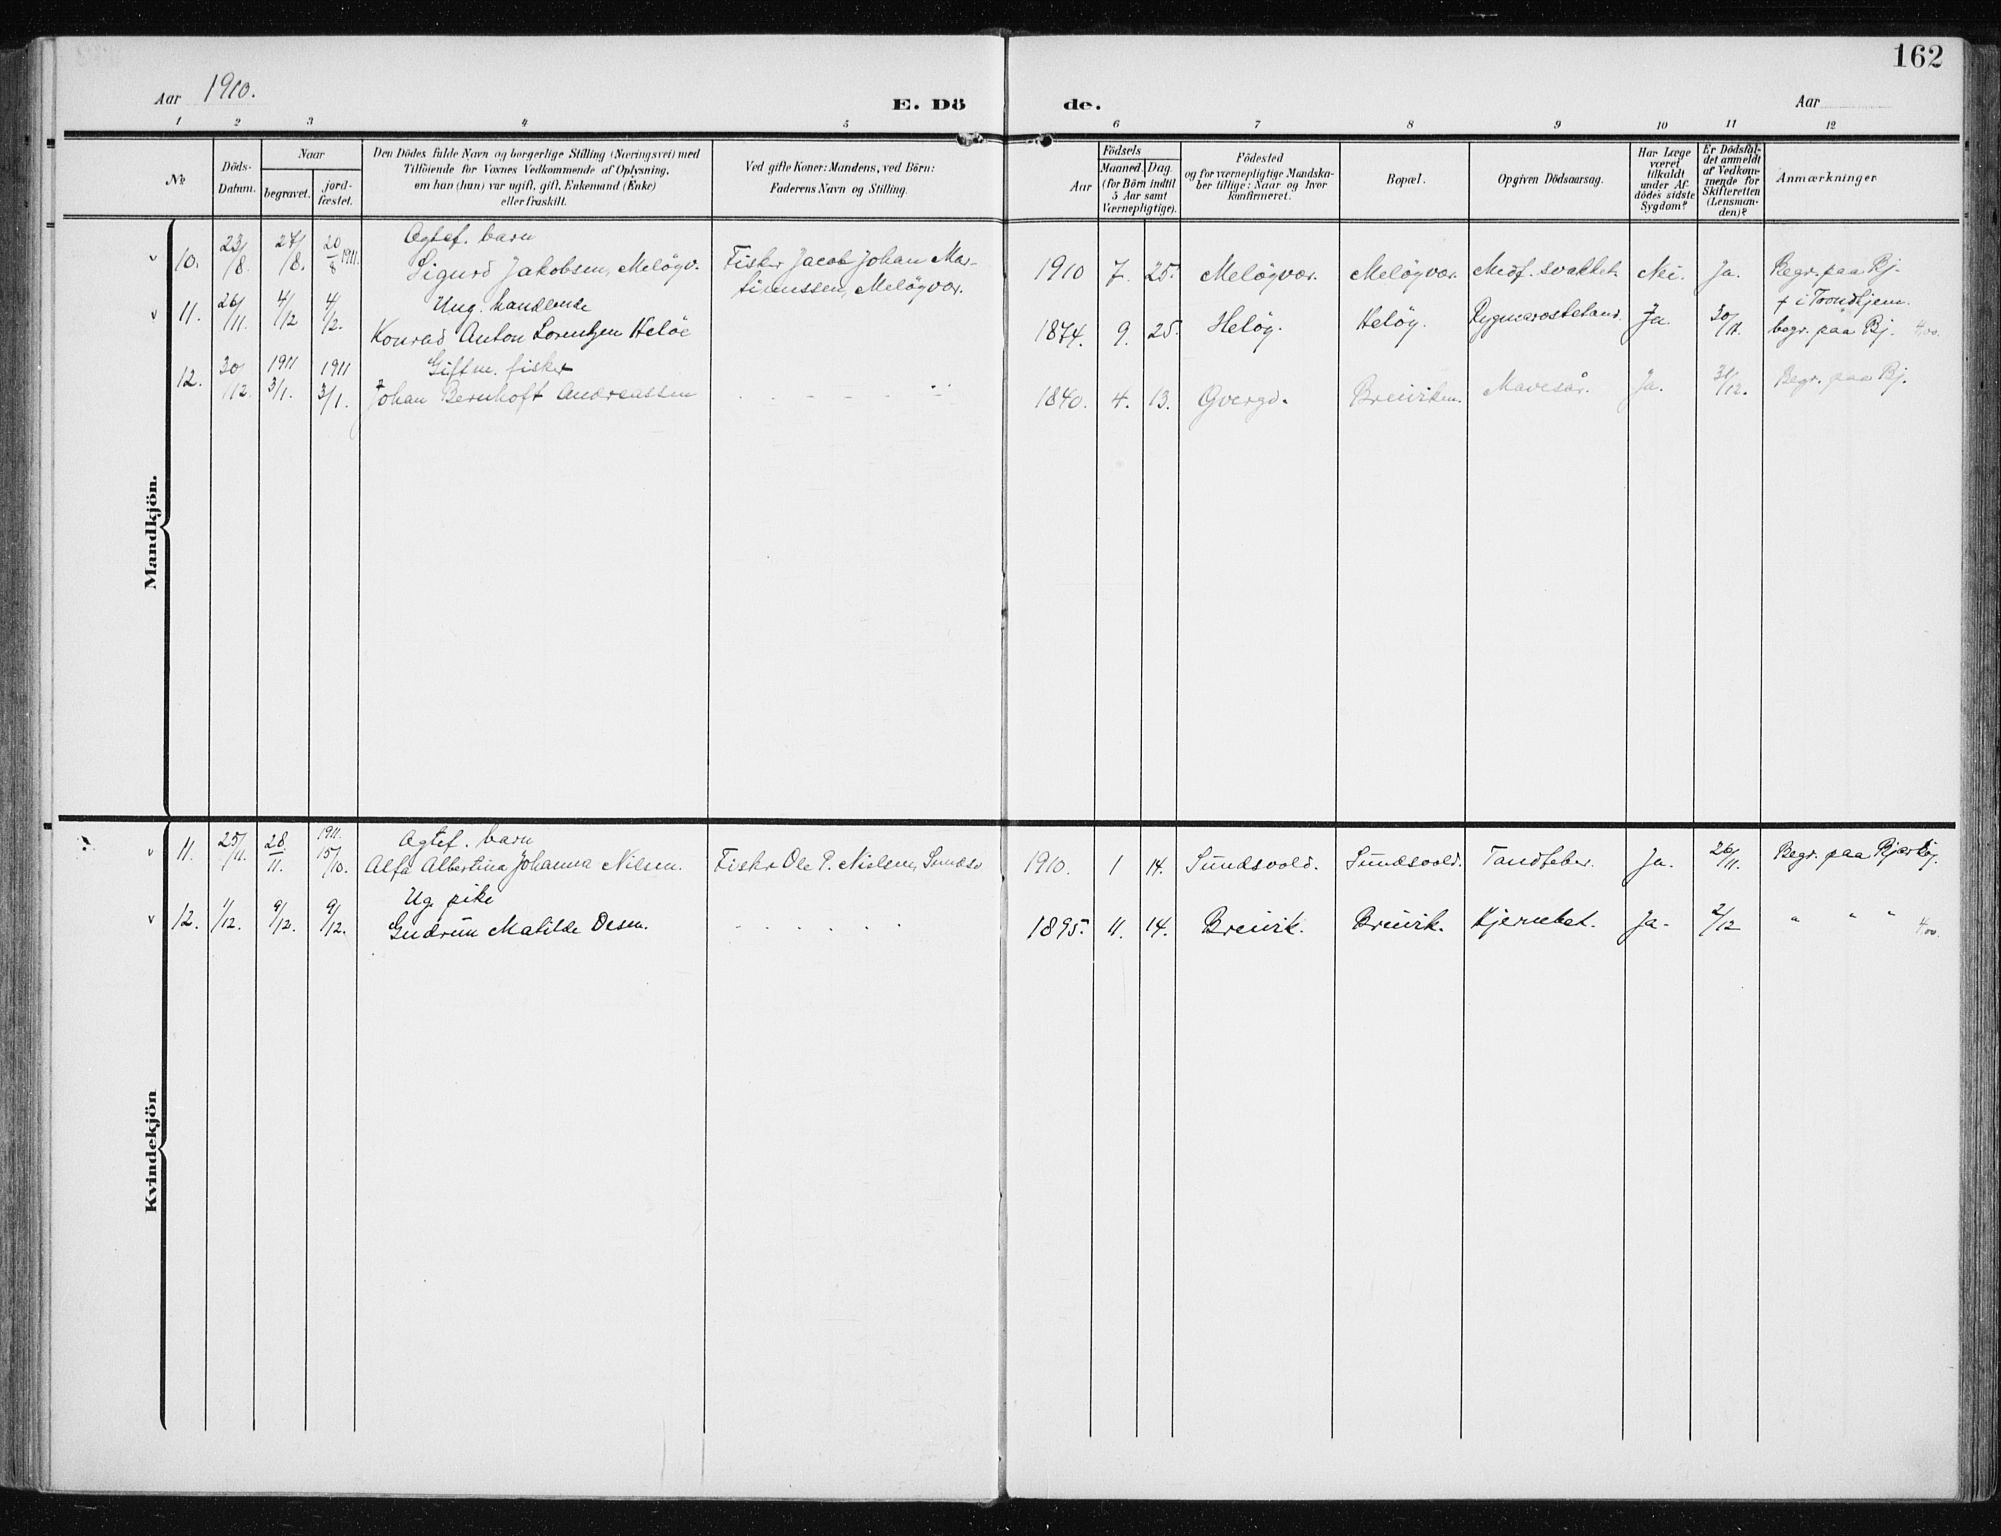 162
Aar 1910.
E. Dö de.
Aar
1 2 3 4 5 6 7 8 9 10 11 12
No
Döds-
Datum.
Naar
begravet.
jord-
fæstet.
Den Dödes fulde Navn og borgerlige Stilling (Næringsvei) med
Tilföiende for Voxnes Vedkommende af Oplysning,
om han (hun) var ugift, gift, Enkemand (Enke)
eller fraskilt.
Ved gifte Koner: Mandens, ved Börn:
Faderens Navn og Stilling.
Födsels
Aar
Maaned. Dag.
(for Börn indtil
5 Aar samt
Værnepligtige).
Födested
og for værnepligtige Mandska-
ber tillige: Naar og hvor
konfirmeret.
Bopæl.
Opgiven Dödsaarsag.
Har Læge
været
tilkaldt
under Af-
dödes sidste
Sygdom?
Er Dödsfal-
det anmeldt
af Vedkom-
mende for
Skifteretten
(Lensman-
den)?
Anmærkninger
Mandkjön.
10. 23/8. 27/8. 20/8 1911. Ægtef. barn
Sigurd Jakobsen, Melöyv. Fisker Jacob Johan Mar-
tinussen, Melöyvær. 1910 7. 25. Melöyvær. Melöyvær. Medf. svakhet. Nei. Ja. Begr. paa Bj.
11. 26/11. 4/12 4/12. Ung. handlende
Konrad Anton Lorentzen Helöe 1874. 9. 25. Helöy. Helöy. Ja. 30/11. † i Trondhjem.
begr. paa Bj. 4/00.
12. 30/12. 1911 3/1. 1911 3/1. Giftm. fisker
Johan Bernhoft Andreassen - - - - - 1840. 4. 13. Breiviken. Mavesår. Ja. 31/12. Begr. paa Bj.
Kvindekjön
11. 25/11. 28/11. 1911. 15/10. Ægtef. barn
Alfa Albertina Johanna Nilsen. Fisker Ole P. Nielsen, Sundsv 1910. 1 14. Sundsvold. Sundsvold. Tandfeber. Ja. 26/11. Begr. paa Bjarköy.
12. 1/12. 9/12. 9/12. Ug. pike
Gudrun Matilde Olsen. - - - - - - 1895. 11. 14. Breivik. Breivik. Ja. 2/12 " " " 4/00.